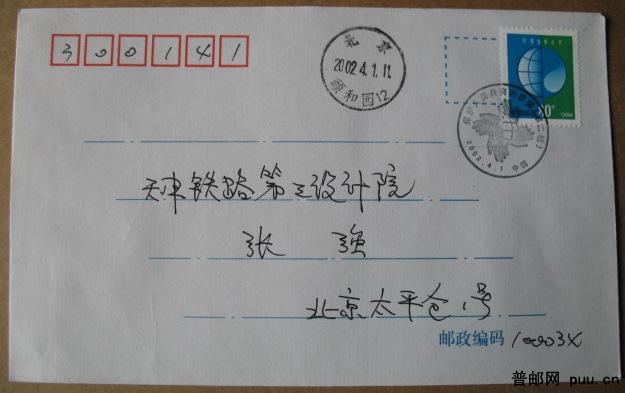 300141
北京
2002.4.1.11
颐和园12
80分
CHINA
2002.4.1 中国
天津铁路第三设计院
张强
北京太平仓1号
邮政编码 10003X
普邮网 puu.cn